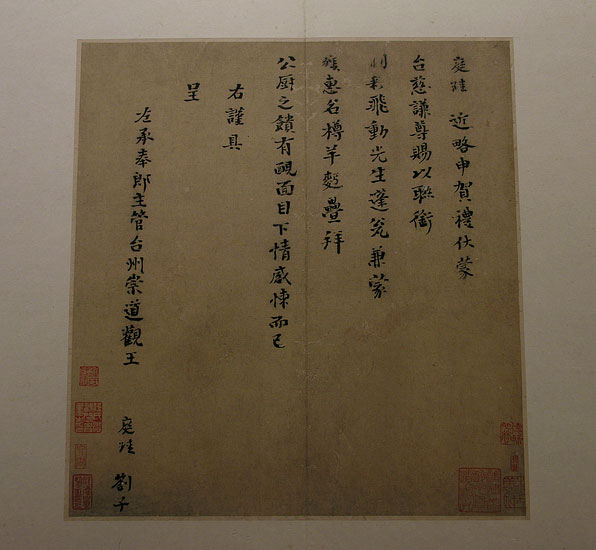 庭珪 近略申賀禮伏蒙
台慈謙尊賜以聯銜
飛動光生蓬華兼蒙
惠名樽羊麪疊拜
公厨之饋有靦面目下情感悚而已
右謹具
呈
左承奉郎主管台州崇道觀王
庭珪 劄子